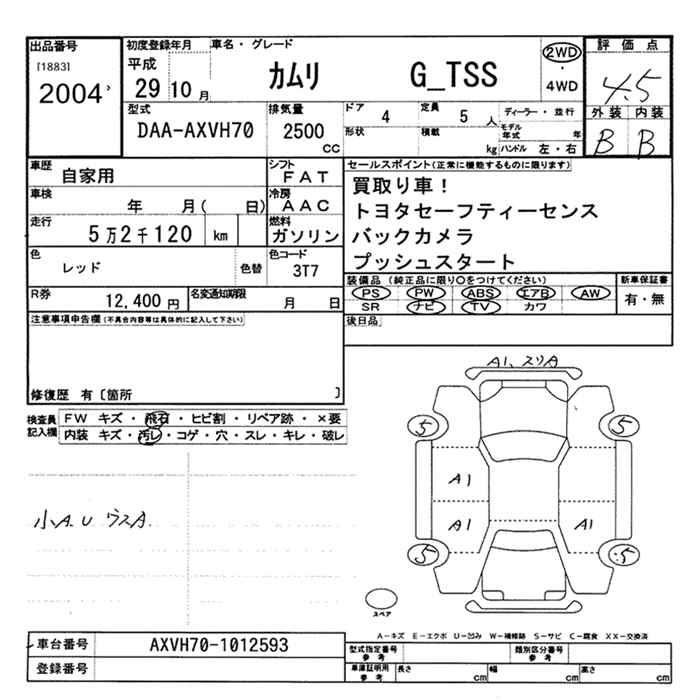 出品番号
[1883]
2004
初度登録年月
平成
29
10
月
車名・グレード
カムリ
G_TSS
2WD
・
4WD
評価点
4.5
外装
内装
B
B
型式
DAA-AXVH70
排気量
2500
CC
ドア
4
定員
5
人
ディーラー・並行
形状
積載
kg
モデル年式
年
ハンドル 左・右
車歴
自家用
シフト
FAT
車検
年 月( 日)
冷房
AAC
走行
5万2千120
km
燃料
ガソリン
色
レッド
色替
色コード
3T7
R券
12,400 円
名変通知期限
月 日
セールスポイント(正常に機能するものに限ります)
買取り車!
トヨタセーフティーセンス
バックカメラ
プッシュスタート
装備品 (純正品に限り○をつけてください)
PS PW ABS エアB AW
SR ナビ TV カワ
新車保証書
有・無
注意事項申告欄(不具合内容等は具体的に記入して下さい)
後日品
修復歴 有〔箇所 〕
検査員記入欄
FW キズ・飛石・ヒビ割・リペア跡・×要
内装 キズ・汚レ・コゲ・穴・スレ・キレ・破レ
小A.U ウスA.
A1、スリA
5
5
A1
A1
A1
5
5
スペア
A-キズ E-エクボ U-凹み W-補修跡 S-サビ C-腐食 XX-交換済
車台番号
AXVH70-1012593
登録番号
型式指定番号
参考
類別区分番号
参考
車庫証明用
参考
長さ
cm
幅
cm
高さ
cm